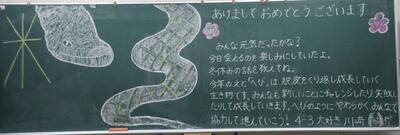 あけまして おめでとう ございます
みんな元気だったかな?
今日会えるのを楽しみにしていたよ。
冬休みの話を教えてね。
今年のえと「へび」は 脱皮をくり返し成長していく
生き物です。みんなも新しいことにチャレンジしたり失敗し
たりして成長していきます。へびのようにやわらかくみんなで
協力して進んでいこう! 4-3 大好き 川崎